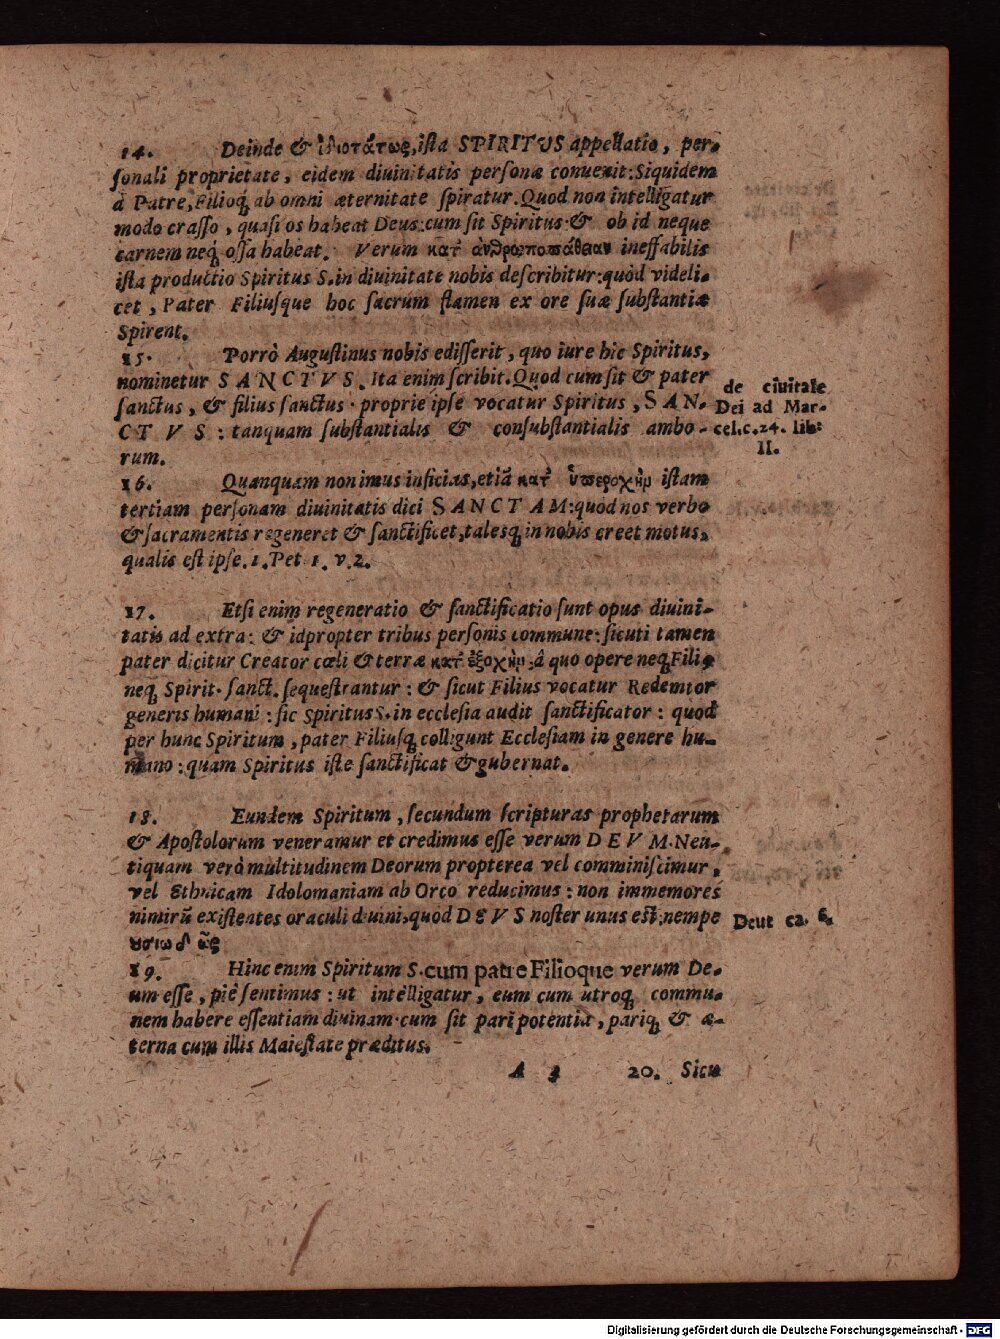 14. Deinde & ἰδιοτάτως, iſta SPIRITUS appellatio, per-
ſonali proprietate, eidem diuinitatis perſonæ conuenit: Siquidem
à Patre, Filioq́; ab omni æternitate ſpiratur. Quod non intelligatur
modo craſſo, quaſi os habeat Deus: cum ſit Spiritus & ob id neque
carnem neq́; oſſa habeat. Verum κατ' ἀνθρωποπάθειαν ineffabilis
iſta productio Spiritus S. in diuinitate nobis deſcribitur: quòd videli-
cet, Pater Filiuſque hoc ſacrum flamen ex ore ſuæ ſubſtantiæ
Spirent.
15. Porrò Auguſtinus nobis edifſerit, quo iure hic Spiritus,
nominetur SANCTVS. Ita enim ſcribit. Quod cum ſit & pater
ſanctus, & filius ſanctus · proprie ipſe vocatur Spiritus, SAN-
CTVS: tanquam ſubſtantialis & conſubſtantialis ambo-
rum.
de ciuitate
Dei ad Mar-
cel. c. 24. lib:
II.
16. Quanquam non imus inficias, etiã κατ' ὑπεροχὴν iſtam
tertiam perſonam diuinitatis dici SANCTAM: quòd nos verbo
& ſacramentis regeneret & ſanctificet, talesq́; in nobis creet motus,
qualis eſt ipſe. 1. Pet 1. v. 2.
17. Etſi enim regeneratio & ſanctificatio ſunt opus diuini-
tatis ad extra: & idpropter tribus perſonis commune: ſicuti tamen
pater dicitur Creator cœli & terræ κατ' ἐξοχὴν: â quo opere neq́; Filiꝰ
neq́; Spirit. ſanct. ſequeſtrantur: & ſicut Filius vocatur Redemtor
generis humani: ſic Spiritus S. in eccleſia audit ſanctificator: quod
per hunc Spiritum, pater Filiuſq́; colligunt Eccleſiam in genere hu-
mano: quam Spiritus iſte ſanctificat & gubernat.
18. Eundem Spiritum, ſecundum ſcripturas prophetarum
& Apoſtolorum veneramur et credimus eſſe verum DEVM. Neu-
tiquam verò multitudinem Deorum propterea vel comminiſcimur,
vel Ethnicam Idolomaniam ab Orco reducimus: non immemores
nimirũ exiſtentes oraculi diuini, quod DEVS noſter unus eſt; nempe
ουσιωδῶς
Deut ca. 6.
19. Hinc enim Spiritum S. cum patre Filioque verum De-
um eſſe, piè ſentimus: ut intelligatur, eum cum utroq́; commu-
nem habere eſſentiam diuinam · cum ſit pari potentia, pariq́; & æ-
terna cum illis Maieſtate præditus.
A 3 20. Sicu
Digitalisierung gefördert durch die Deutsche Forschungsgemeinschaft - DFG